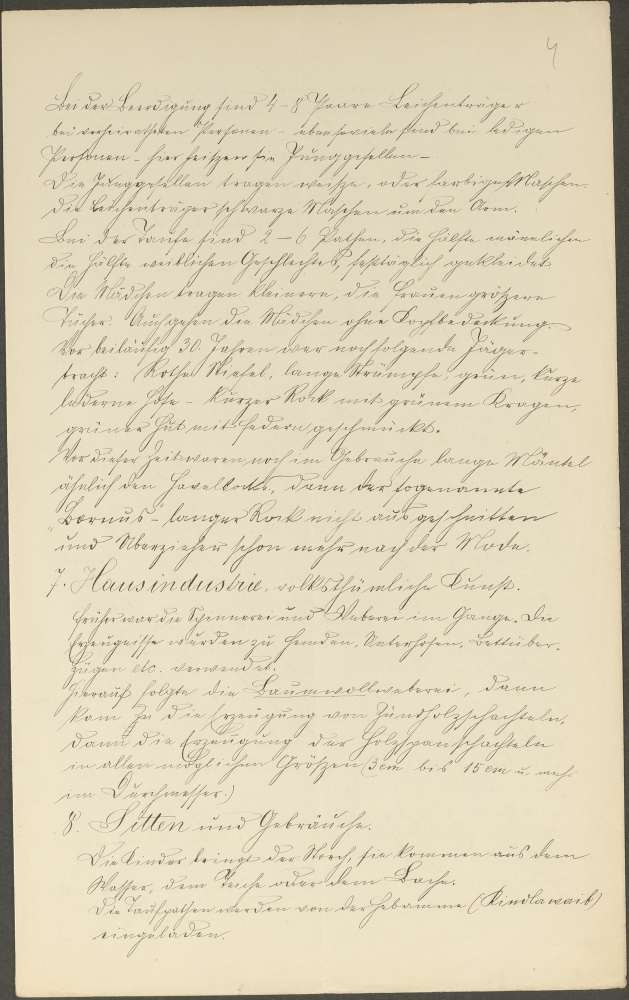 4
Bei der Beerdigung sind 4 - 8 Paare Leichenträger
bei verheiratheten Personen - ebensoviele sind bei ledigen
Personen - hier heiszen sie Junggesellen -
Die Junggesellen tragen weisze, oder farbige Maschen.
die Leichenträger schwarze Maschen um den Arm.
Bei der Taufe sind 2 - 6 Pathen, die Hälfte männlichen
die Hälfte weiblichen Geschlechtes, festtäglich gekleidet
Die Mädchen tragen kleinere, die Frauen gröszere
Tücher. Auch gehen die Mädchen ohne Kopfbedeckung.
Vor beiläufig 30. Jahren war nachfolgende Jäger-
tracht: Rothe Stiefel, lange Strümpfe, grün, kurze
lederne Hose - kurzer Rock mit grünem Kragen,
grüner Hut mit Federn geschmückt.
Vor dieser Zeit waren noch im Gebrauche lange Mäntel
ähnlich den Havelloks, dann der sogenannte
"Bornus" - langer Rock nicht ausgeschnitten
und Überzieher schon mehr nach der Mode.
7. Hausindustrie, volksthümliche Kunst.
Früher war die Spinnerei und Weberei im Gange. Die
Erzeugnisse wurden zu Hemden, Unterhosen, Bettüber-
zügen etc. verwendet.
Hierauf folgte die Baumwollweberei, dann
kam ja die Erzeugung von Zündholzschachteln,
dann die Erzeugung der Holzspanschachteln
in allen möglichen Gröszen (3 cm bis 15 cm u. mehr
im Durchmesser.)
8. Sitten und Gebräuche.
Die Kinder bringt der Storch, sie kommen aus dem
Wasser, dem Teiche oder dem Bache.
Die Taufpathen werden von der Hebamme (Kindlawaib)
eingeladen.